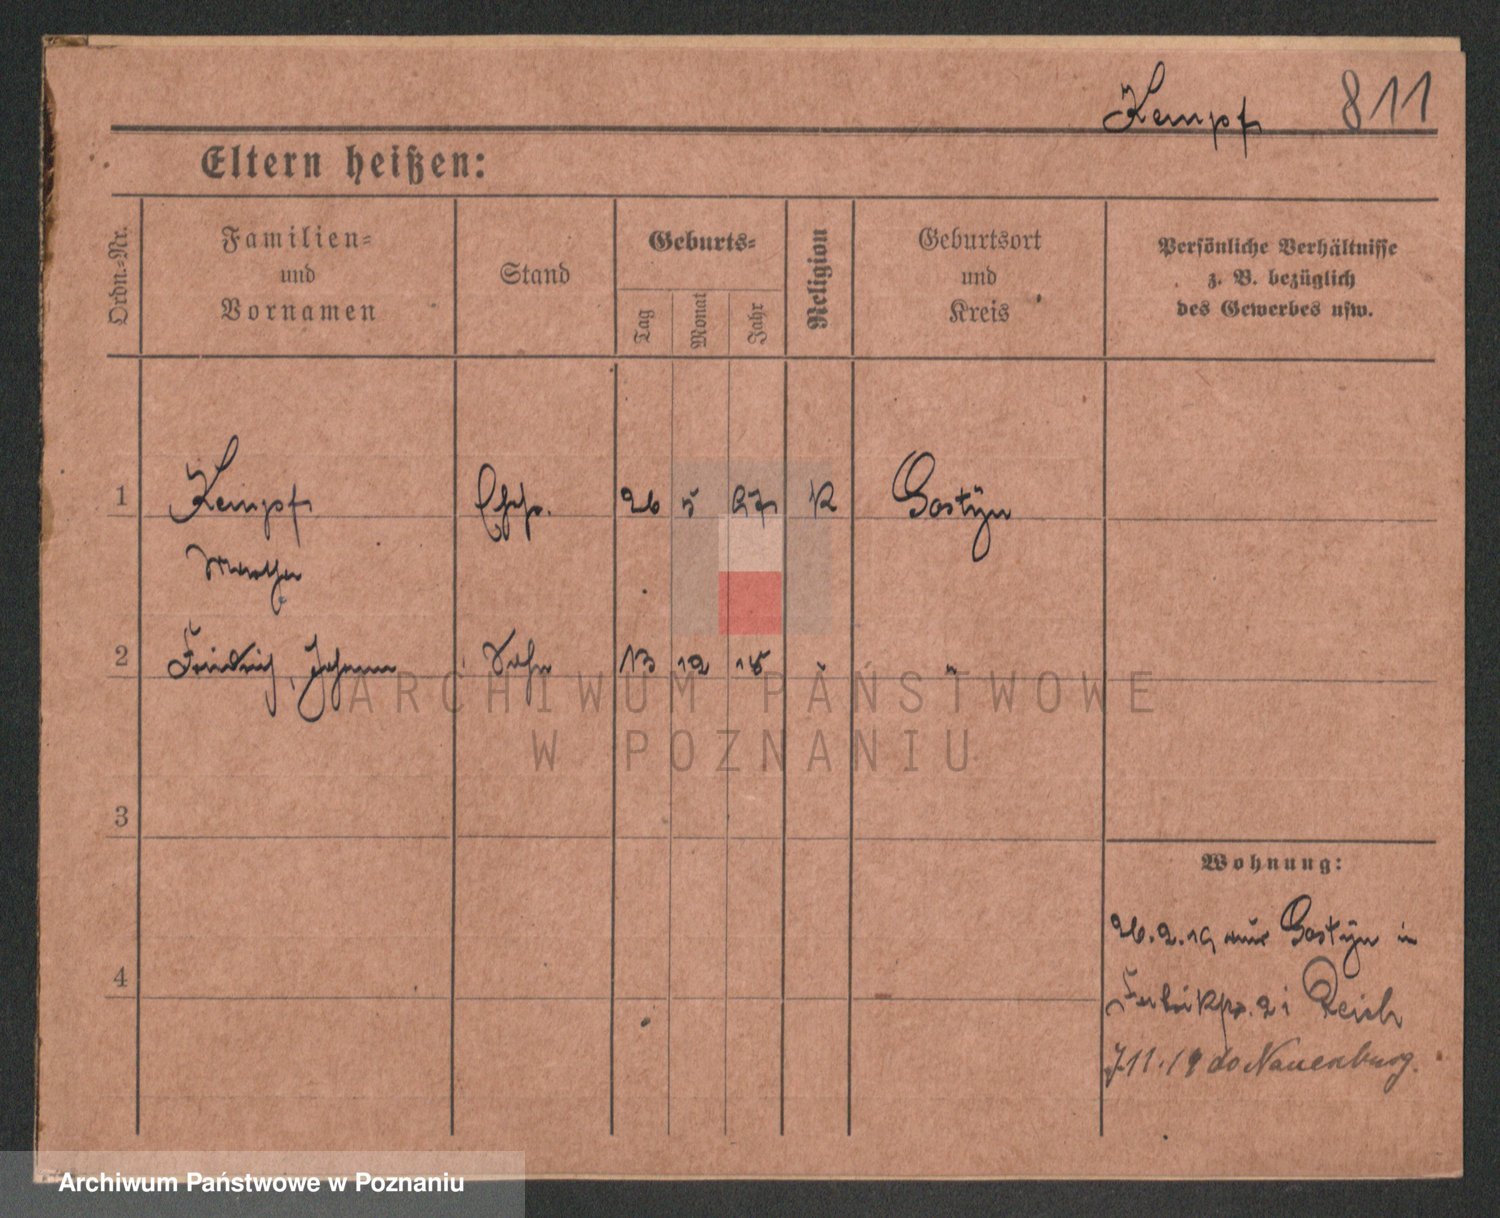 Kempf 811
Eltern heißen:
Ordn.-Nr.
Familien-
und
Vornamen
Stand
Geburts-
Tag
Monat
Jahr
Religion
Geburtsort
und
Kreis
Persönliche Verhältnisse
z. B. bezüglich
des Gewerbes usw.
1 Kempf 26 5 K Gostyn
2 Friedrich, Johann Sohn 13 12 18 "
ARCHIWUM PAŃSTWOWE
W POZNANIU
3
Wohnung:
26.2.19 aus Gostyn in
2 i Reich
7.11.19 do Nauenburg.
4
Archiwum Państwowe w Poznaniu